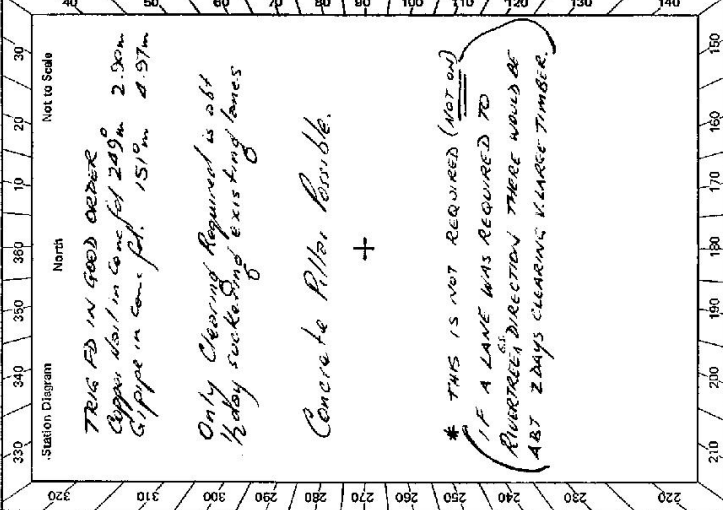 Station Diagram North Not to Scale
330 340 350 360 10 20 30
40 50 60 70 80 90 100 110 120 130 140
150 160 170 180 190 200 210
220 230 240 250 260 270 280 290 300 310 320
TRIG FD IN GOOD ORDER
Copper Nail in Conc fd 249°m 2.90m
GI pipe in Conc fd. 151°m 4.97m
Only Clearing Required is abt
½ day suckering existing lanes
Concrete Pillar Possible.
+
* THIS IS NOT REQUIRED (NOT ON)
IF A LANE WAS REQUIRED TO
RIVERTREE G.S. DIRECTION THERE WOULD BE
ABT 2 DAYS CLEARING V. LARGE TIMBER.